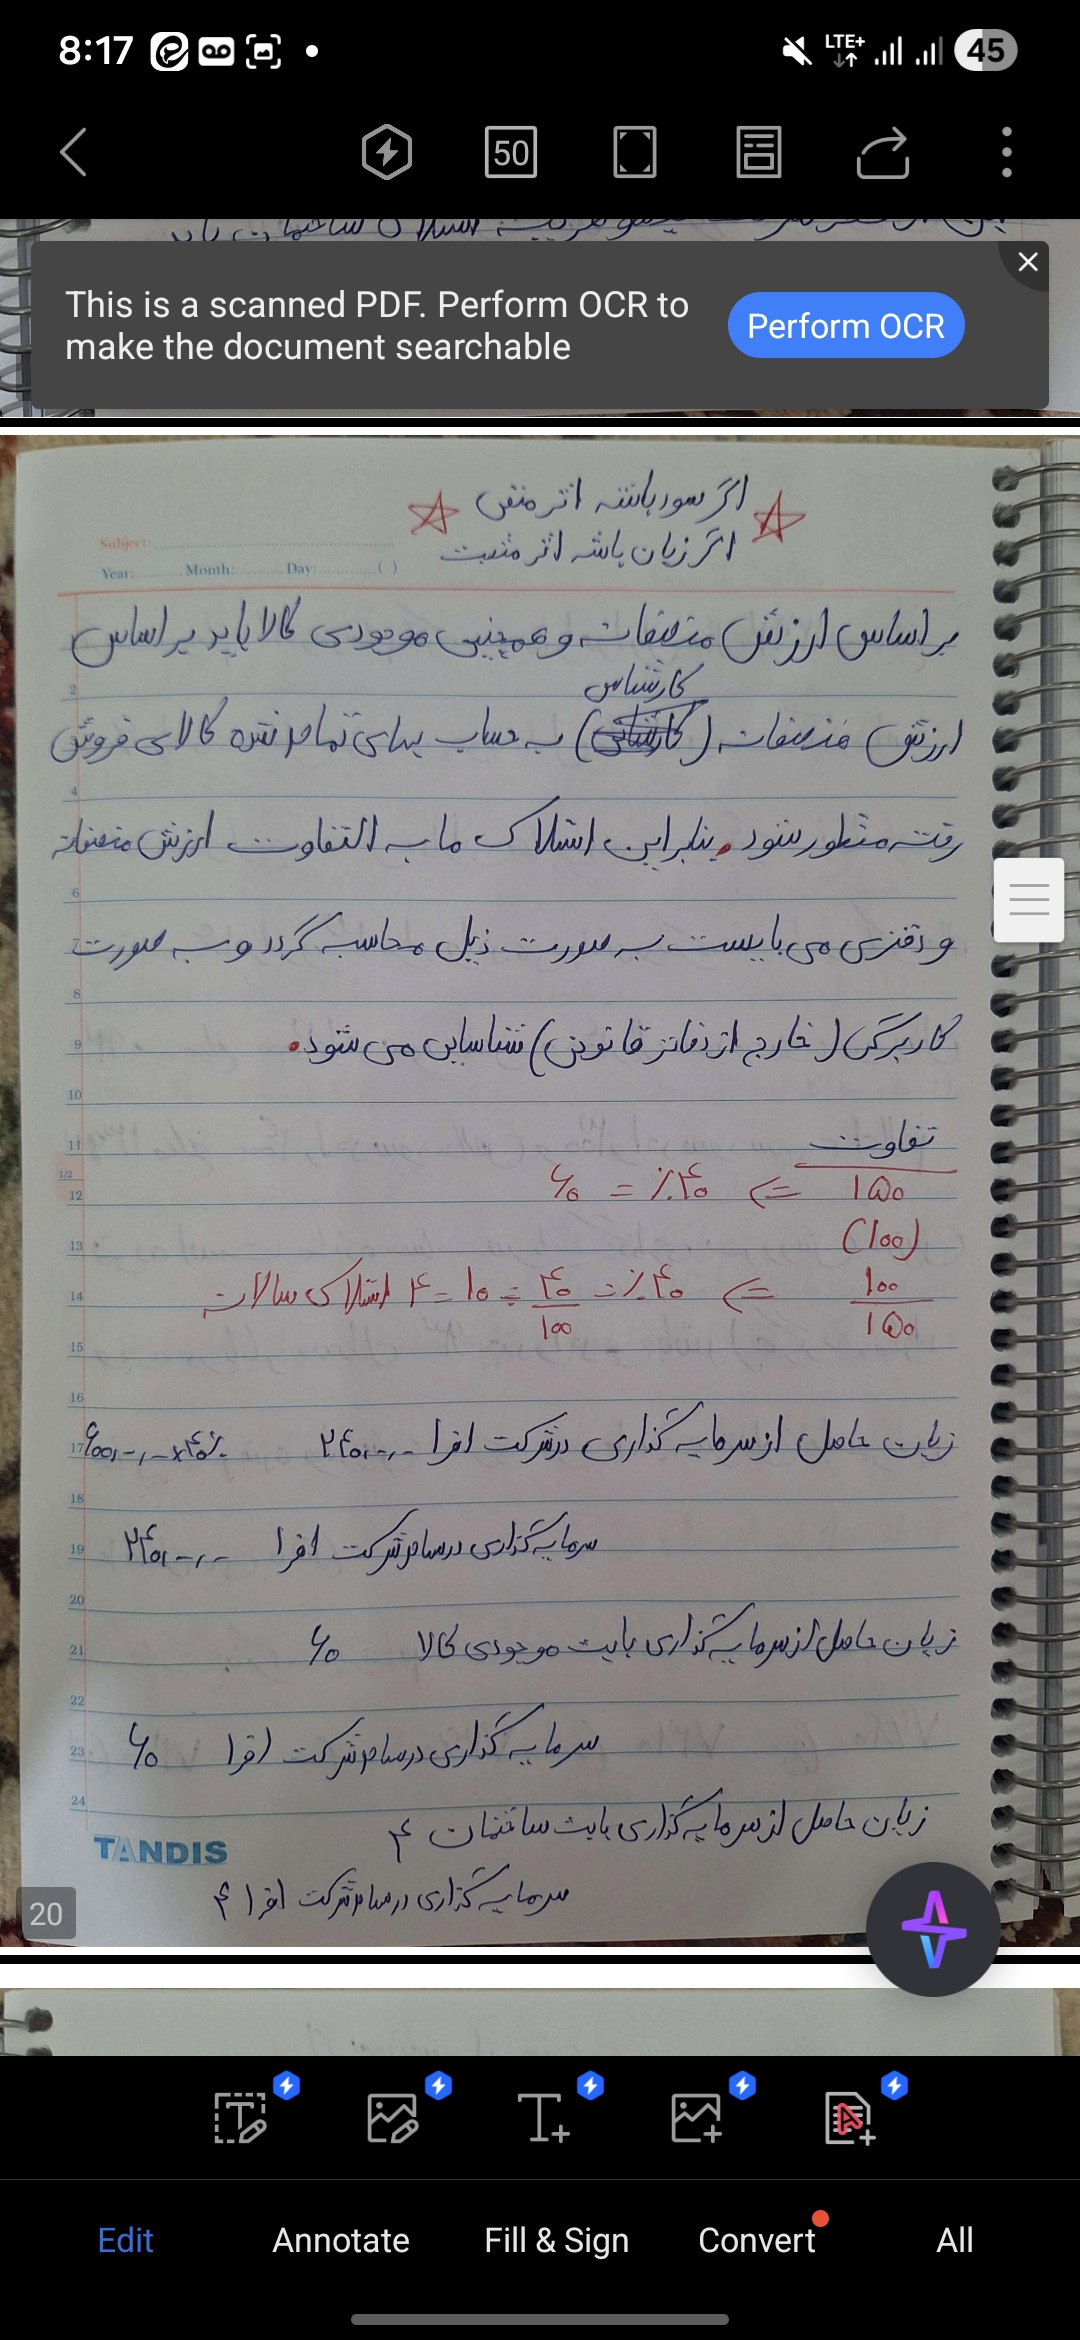 8:17
LTE+
45
50
This is a scanned PDF. Perform OCR to
make the document searchable
Perform OCR
اگر سود باشه اثر منفی
اگر زیان باشه اثر مثبت
Subject:
Year: Month: Day: ( )
بر اساس ارزش منصفانه و همچنین موجودی کالا باید بر اساس
کارشناس
ارزش منصفانه ( ) به حساب بهای تمام شده کالای فروش
رفته منظور شود. بنابراین استهلاک مابه التفاوت ارزش منصفانه
و دفتری می بایست به صورت ذیل محاسبه گردد و به صورت
کاربرگی (خارج از دفاتر قانونی) شناسایی می شود.
تفاوت
۱۵۰ ⇐ ٪۴۰ = ۶۰
(۱۰۰)
۱۰۰ ⇐ ٪۴۰ = ۴۰ ÷ ۱۰ = ۴ استهلاک سالانه
۱۵۰ ۱۰۰
زیان حاصل از سرمایه گذاری در شرکت افرا ۲۴۰,-,- ۶۰۰,-,-×۴۰٪
سرمایه گذاری در سهام شرکت افرا ۲۴۰,-,-
زیان حاصل از سرمایه گذاری بابت موجودی کالا ۶۰
سرمایه گذاری در سهام شرکت افرا ۶۰
زیان حاصل از سرمایه گذاری بابت ساختمان ۴
سرمایه گذاری در سهام شرکت افرا ۴
2
4
6
7
8
9
10
11
1/2
12
13
14
15
16
17
18
19
20
21
22
23
24
TANDIS
20
Edit
Annotate
Fill & Sign
Convert
All